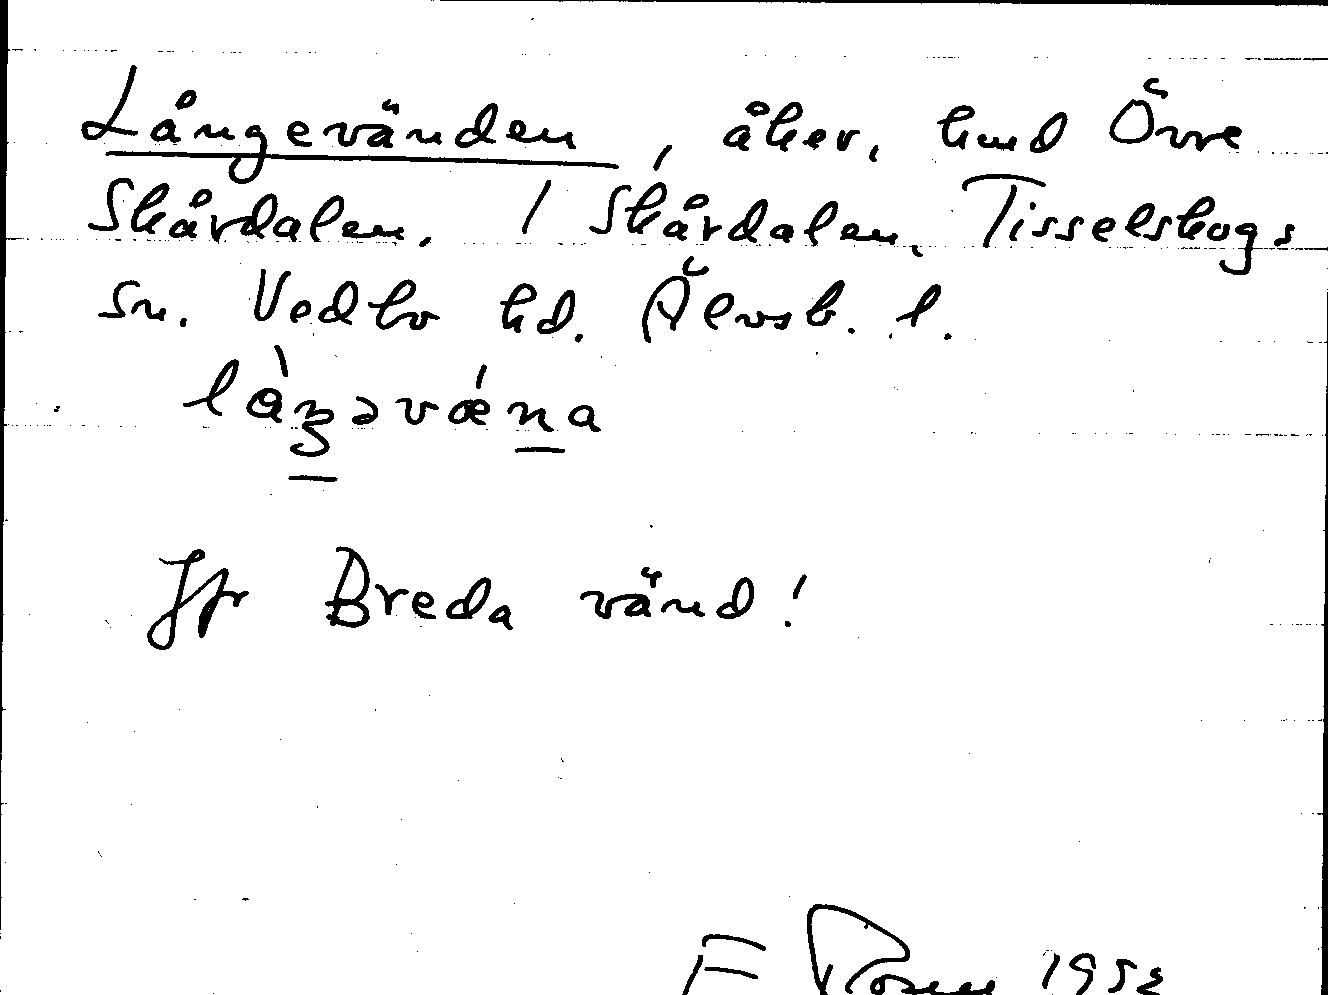 Långevänden, åker, hmd Övre
Skårdalen. 1 Skårdalen, Tisselskogs
sn. Vedbo hd. Älvsb. l.
låŋəvǽna
Jfr Breda vänd!
F Rosen 1952